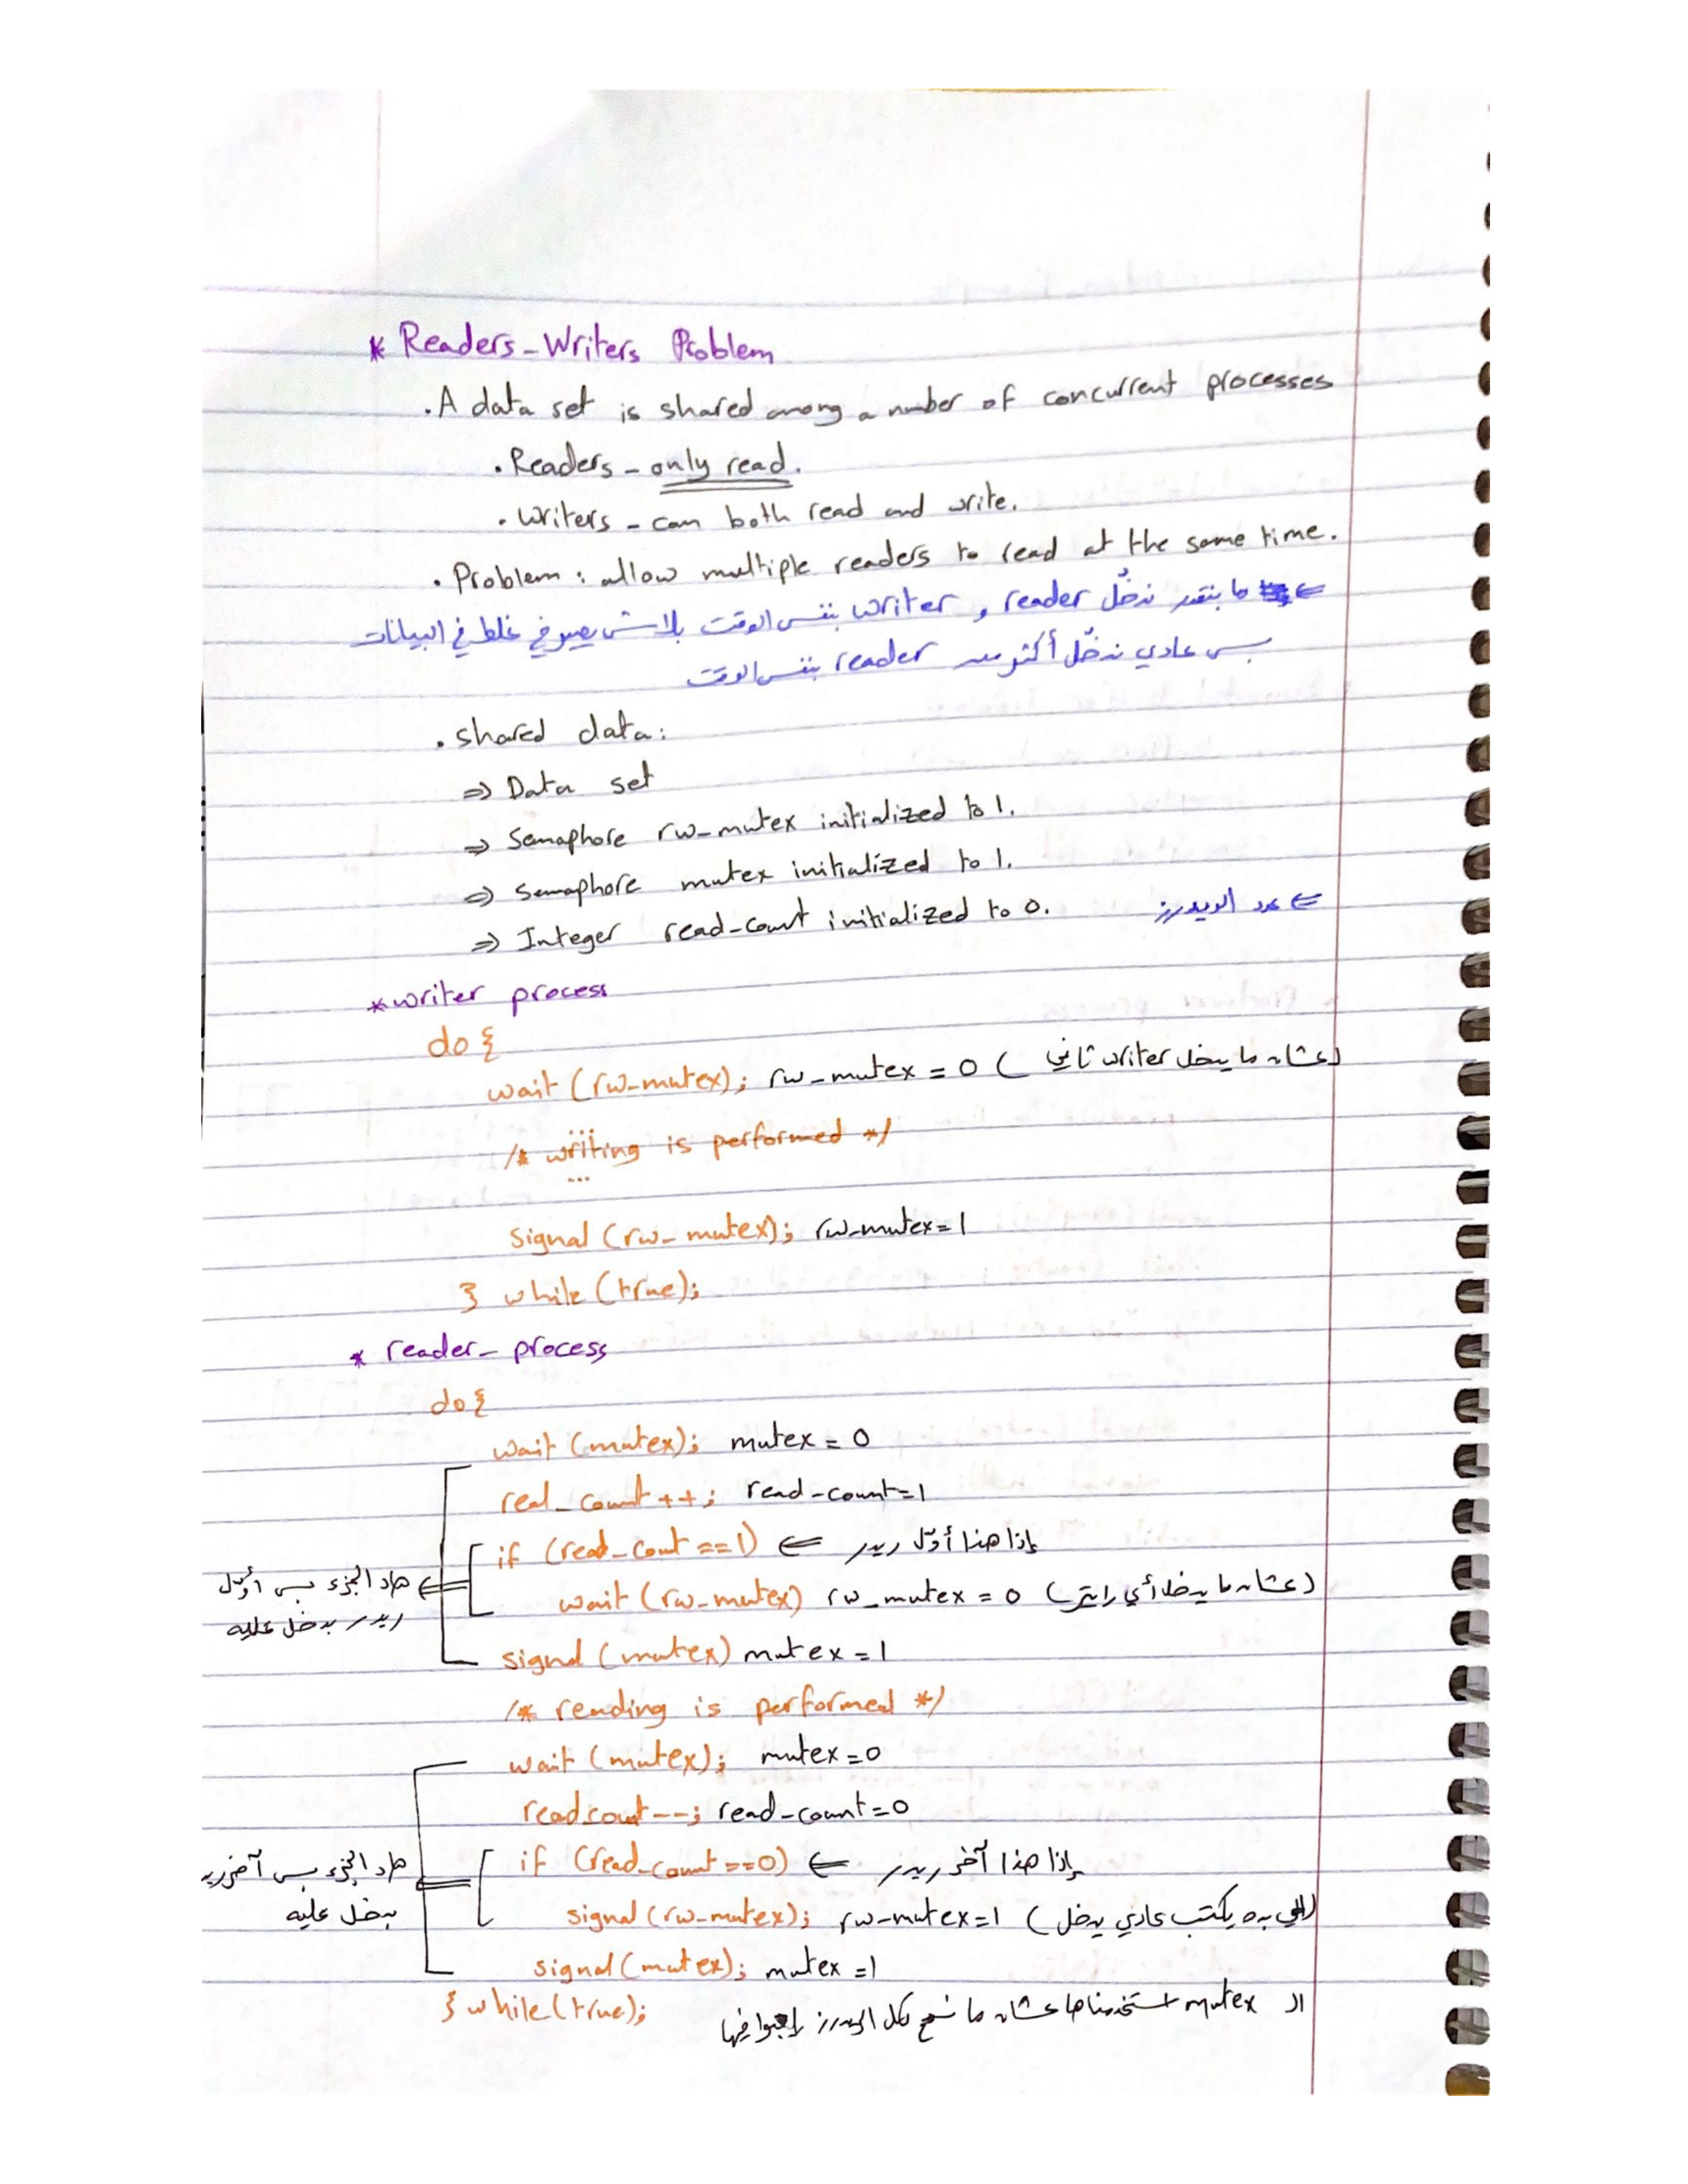 * Readers-Writers Problem
. A data set is shared among a number of concurrent processes
. Readers - only read.
. Writers - can both read and write.
. Problem : allow multiple readers to read at the same time.
⇐ ما بنقدر ندخّل reader و writer بنفس الوقت بلاش يصير في غلط في البيانات
بس عادي ندخّل أكثر من reader بنفس الوقت
. shared data:
⇒ Data set
⇒ Semaphore rw_mutex initialized to 1.
⇒ Semaphore mutex initialized to 1.
⇒ Integer read_count initialized to 0. ⇐ عدد الريدرز
* writer process
do {
wait (rw_mutex); rw_mutex = 0 (عشان ما يدخل writer ثاني)
...
/* writing is performed */
...
signal (rw_mutex); rw_mutex = 1
} while (true);
* reader_process
do {
wait (mutex); mutex = 0
real_count ++; read_count=1
if (read_count ==1) ⇐ إذا هذا أوّل ريدر
هاد الجزء بس أوّل
wait (rw_mutex) rw_mutex = 0 (عشان ما يدخل أي رايتر)
ريدر بدخل عليه
signal (mutex) mutex = 1
/* reading is performed */
wait (mutex); mutex = 0
readcount--; read_count=0
if (read_count ==0) ⇐ إذا هذا آخر ريدر
هاد الجزء بس آخر ريدر
signal (rw_mutex); rw_mutex=1 (الي بده يكتب عادي يدخل)
بدخل عليه
signal (mutex); mutex = 1
} while (true);
الـ mutex استخدمناها عشان ما لكل الريدرز فيها